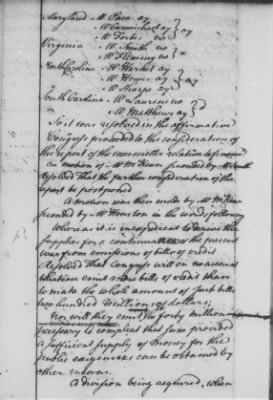 Maryland Mr Paca ay
Mr Carmichael ay } ay
Mr Forbes no
Virginia Mr Smith no
Mr Fleming no } *
North Carolina Mr Penn ay
Mr Hewes ay } ay
Mr Sharpe ay
South Carolina Mr Laurens no
Mr Matthews ay }
So it was resolved in the affirmative
Congress proceeded to the consideration of
the report of the committee relative to
On motion of Mr McKean seconded by Mr
Resolved that the farther consideration of the
report be postponed
A motion was then made by Mr McKean
seconded by Mr Houston in the words following
Whereas it is inexpedient to derive the
supplies for a continuance of the present
war from emissions of bills of credit
Resolved that Congress will on no account
whatever emit more bills of credit than
to make the whole amount of such bills
two hundred million of dollars;
Nor will they emit the forty million
necessary to compleat that sum provided
a sufficient supply of money for the
public exigencies can be obtained by
other means.
A division being required, when